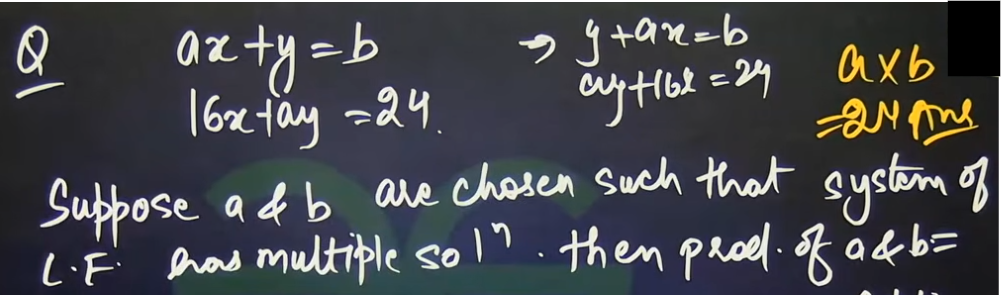 Q ax+y=b → y+ax=b
16x+ay=24. ay+16x=24
axb
=24 Ans
Suppose a & b are chosen such that system of
L.E. has multiple sol^n. then prod. of a & b=